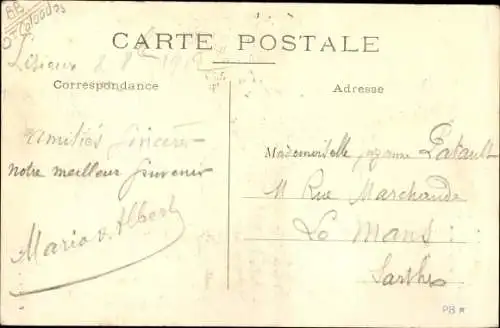 CARTE POSTALE
Lisieux 8 8bre
Correspondance
Adresse
Amitiés sincères
notre meilleur souvenir
Mario & Albert
Mademoiselle Patault
11 Rue Marchande
Le Mans
Sarthe
PB